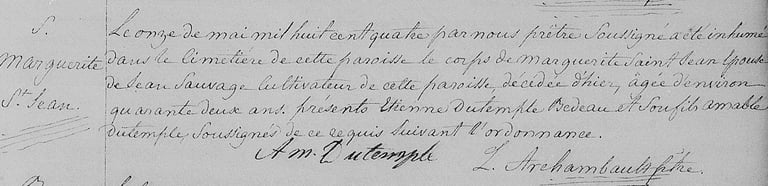 S.
Marguerite
St. Jean.
Le onze de mai mil huit cent quatre par nous prêtre soussigné a été inhumé
dans le cimetière de cette paroisse le corps de marguerite Saint Jean Epouse
de Jean Sauvage Cultivateur de cette paroisse, décédée d'hier, âgée d'environ
quarante deux ans. presents Etienne Dutemple Bedeau et son fils amable
Dutemple, soussignés de ce requis suivant l'ordonnance.
Am. Dutemple
L. Archambault ptre.